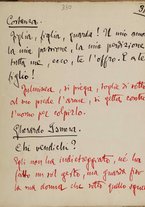 330
Costanza.
Figlia, figlia, guarda! Il mio amo
la mia passione, la mia perdizione
tutta me, ecco, te l'offro. È a te
figlio!
si piega, toglie di sotto
al suo piede l'arme, e getta contro
l'uomo per colpirlo.
Gherardo Ismera.
Chi vendichi?
Egli non ha indietreggiato, né ha
fatto un sol gesto, ma guarda fiso
la sua donna che sotto quello sguar